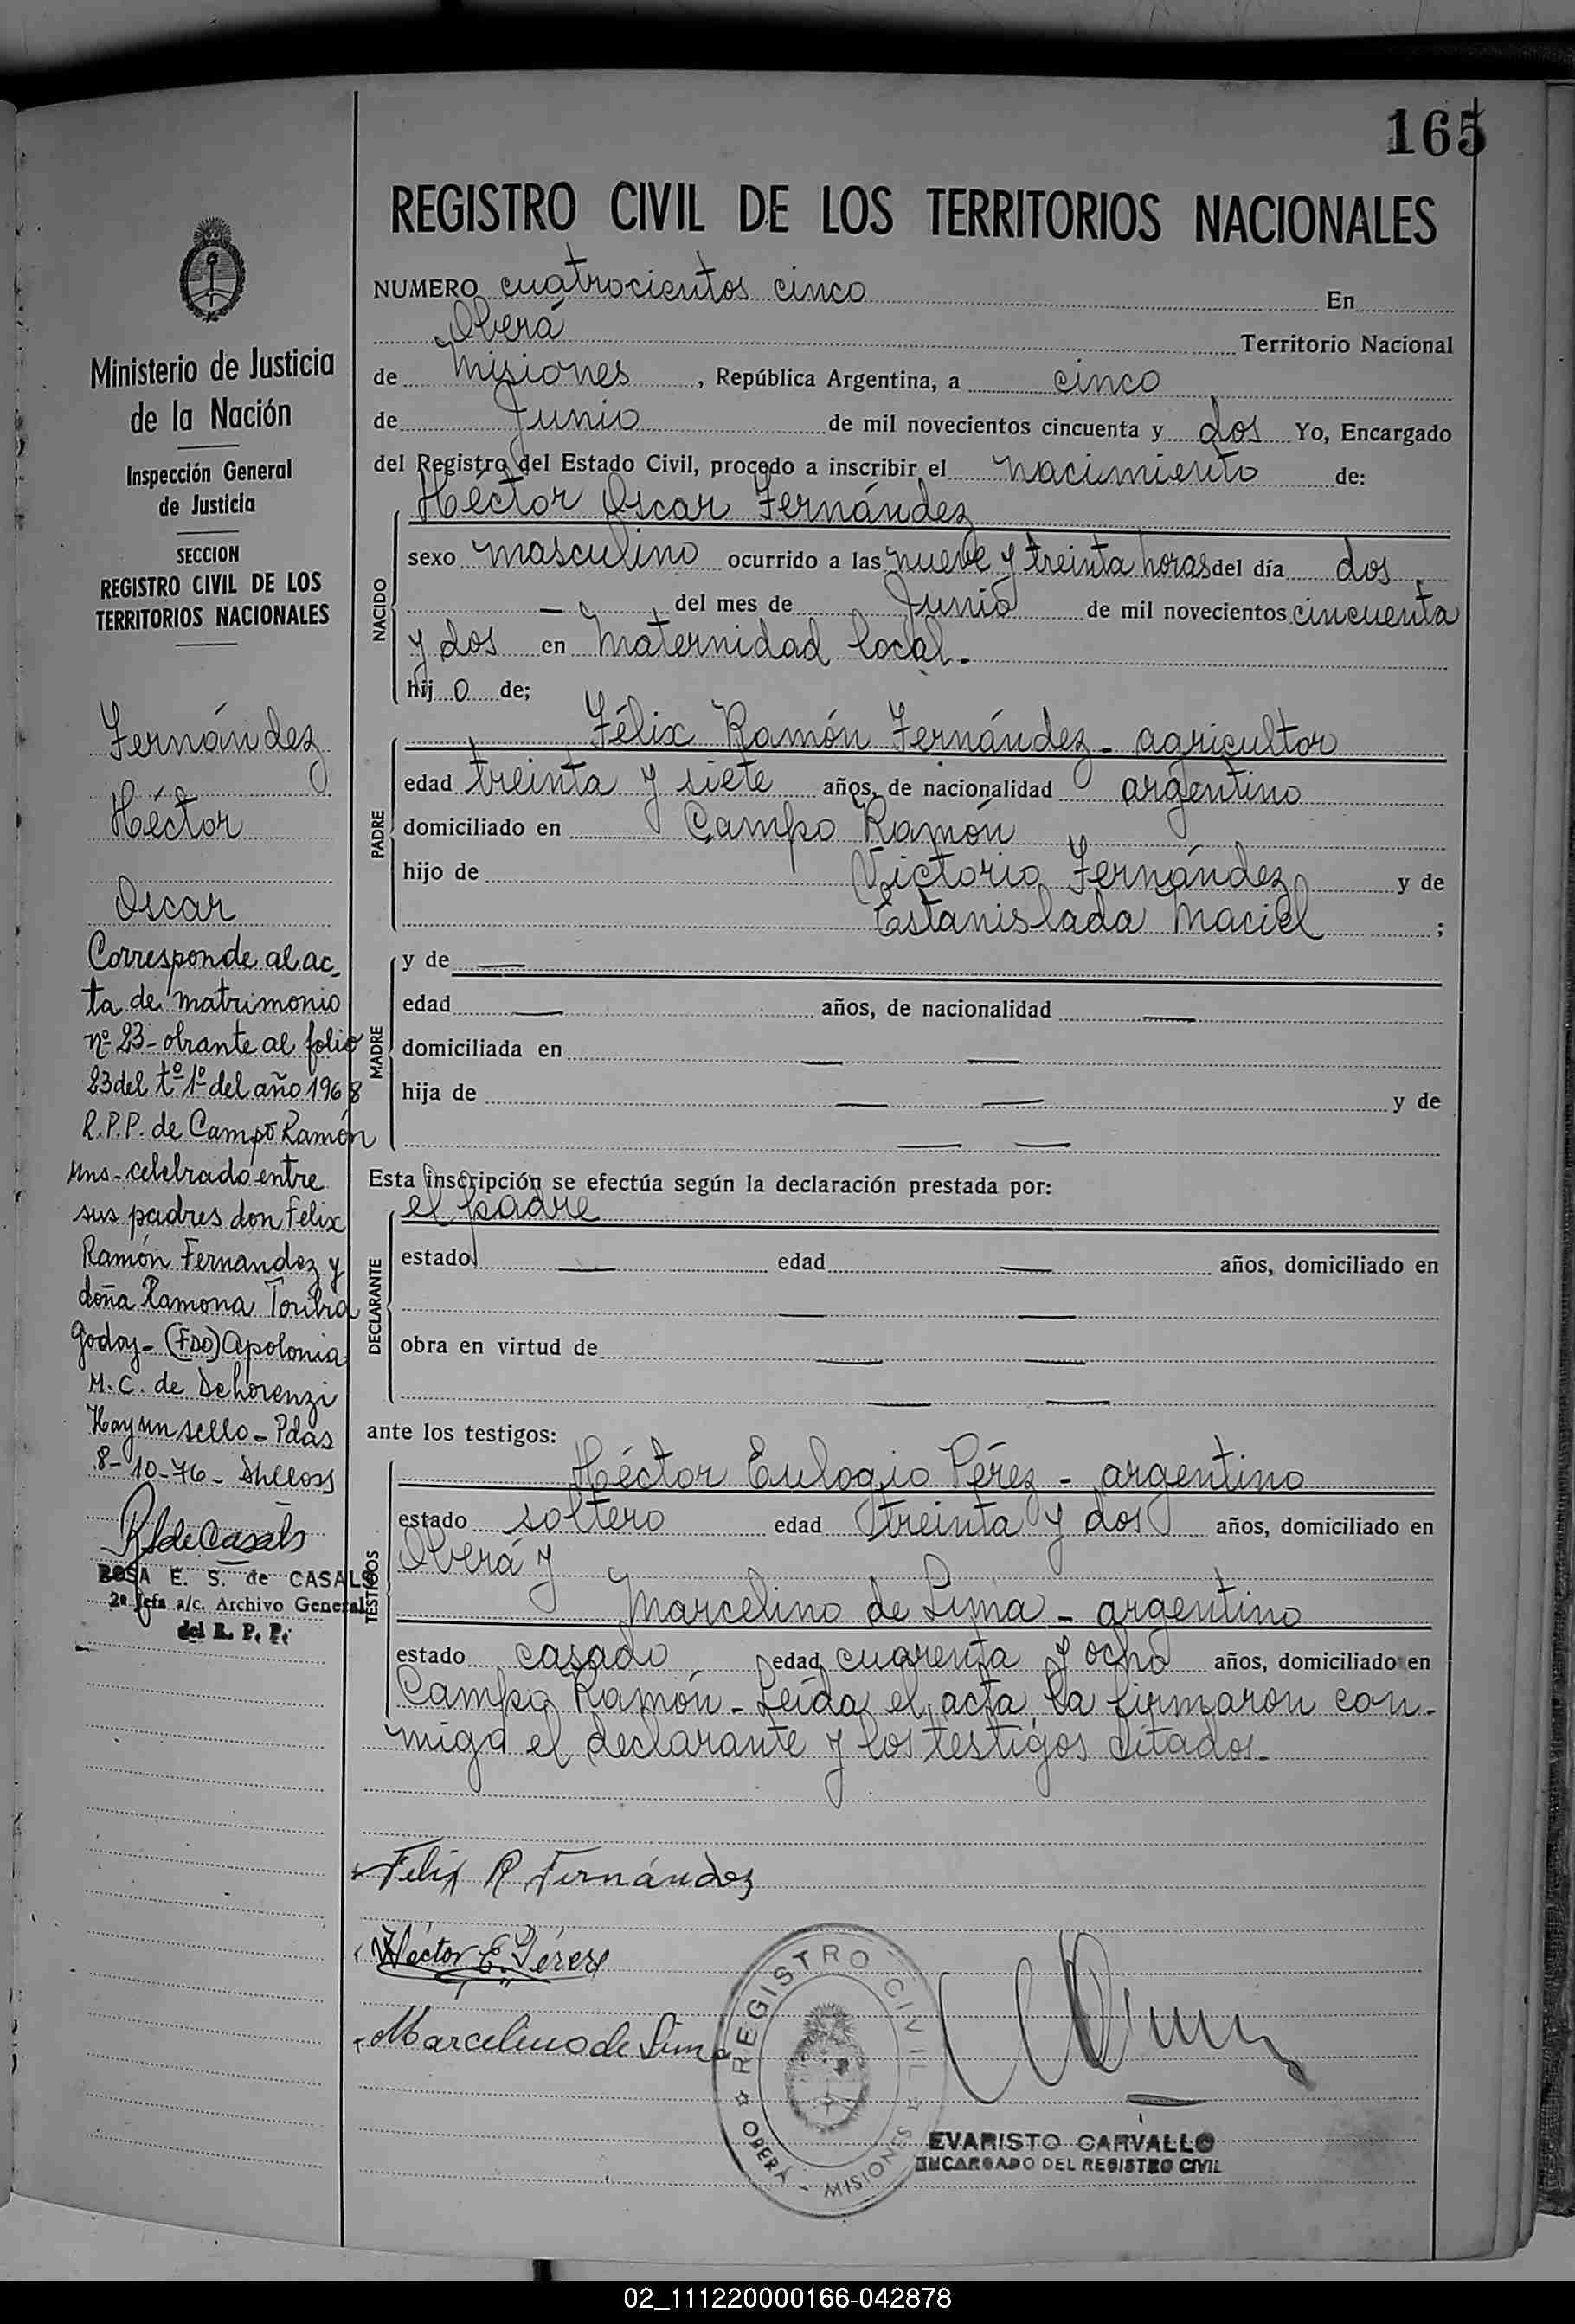 165
REGISTRO CIVIL DE LOS TERRITORIOS NACIONALES
NUMERO cuatrocientos cinco En
Oberá Territorio Nacional
de Misiones, República Argentina, a cinco
de Junio de mil novecientos cincuenta y dos Yo, Encargado
del Registro del Estado Civil, procedo a inscribir el nacimiento de:
Héctor Oscar Fernández
NACIDO
sexo masculino ocurrido a las nueve y treinta horas del día dos
— del mes de Junio de mil novecientos cincuenta
y dos en Maternidad local.
hij o de;
PADRE
Félix Ramón Fernández - agricultor
edad treinta y siete años, de nacionalidad argentino
domiciliado en Campo Ramón
hijo de Victorio Fernández y de
Estanislada Maciel ;
MADRE
y de —
edad — años, de nacionalidad —
domiciliada en — —
hija de — — y de
— —
Esta inscripción se efectúa según la declaración prestada por:
DECLARANTE
el padre
estado — edad — años, domiciliado en
— —
obra en virtud de — —
— —
ante los testigos:
TESTIGOS
Héctor Eulogio Pérez - argentino
estado soltero edad treinta y dos años, domiciliado en
Oberá y
Marcelino de Lima - argentino
estado casado edad cuarenta y ocho años, domiciliado en
Campo Ramón - Leída el acta, la firmaron con-
migo el declarante y los testigos citados.
Felix R Fernández
Héctor E. Pérez
Marcelino de Lima
REGISTRO CIVIL
OBERÁ - MISIONES
EVARISTO CARVALLO
ENCARGADO DEL REGISTRO CIVIL
Ministerio de Justicia
de la Nación
Inspección General
de Justicia
SECCION
REGISTRO CIVIL DE LOS
TERRITORIOS NACIONALES
Fernández
Héctor
Oscar
Corresponde al ac-
ta de matrimonio
nº 23 - obrante al folio
23 del tº 1º del año 1968
R.P.P. de Campo Ramón
Mns - celebrado entre
sus padres don Felix
Ramón Fernandez y
doña Ramona Toribia
Godoy - (FDO) Apolonia
M. C. de
Hay un sello - Pdas
8-10-76 -
R S de Casals
ROSA E. S. de CASALS
2ª Jefa a/c. Archivo General
del R. P. P.
02_111220000166-042878